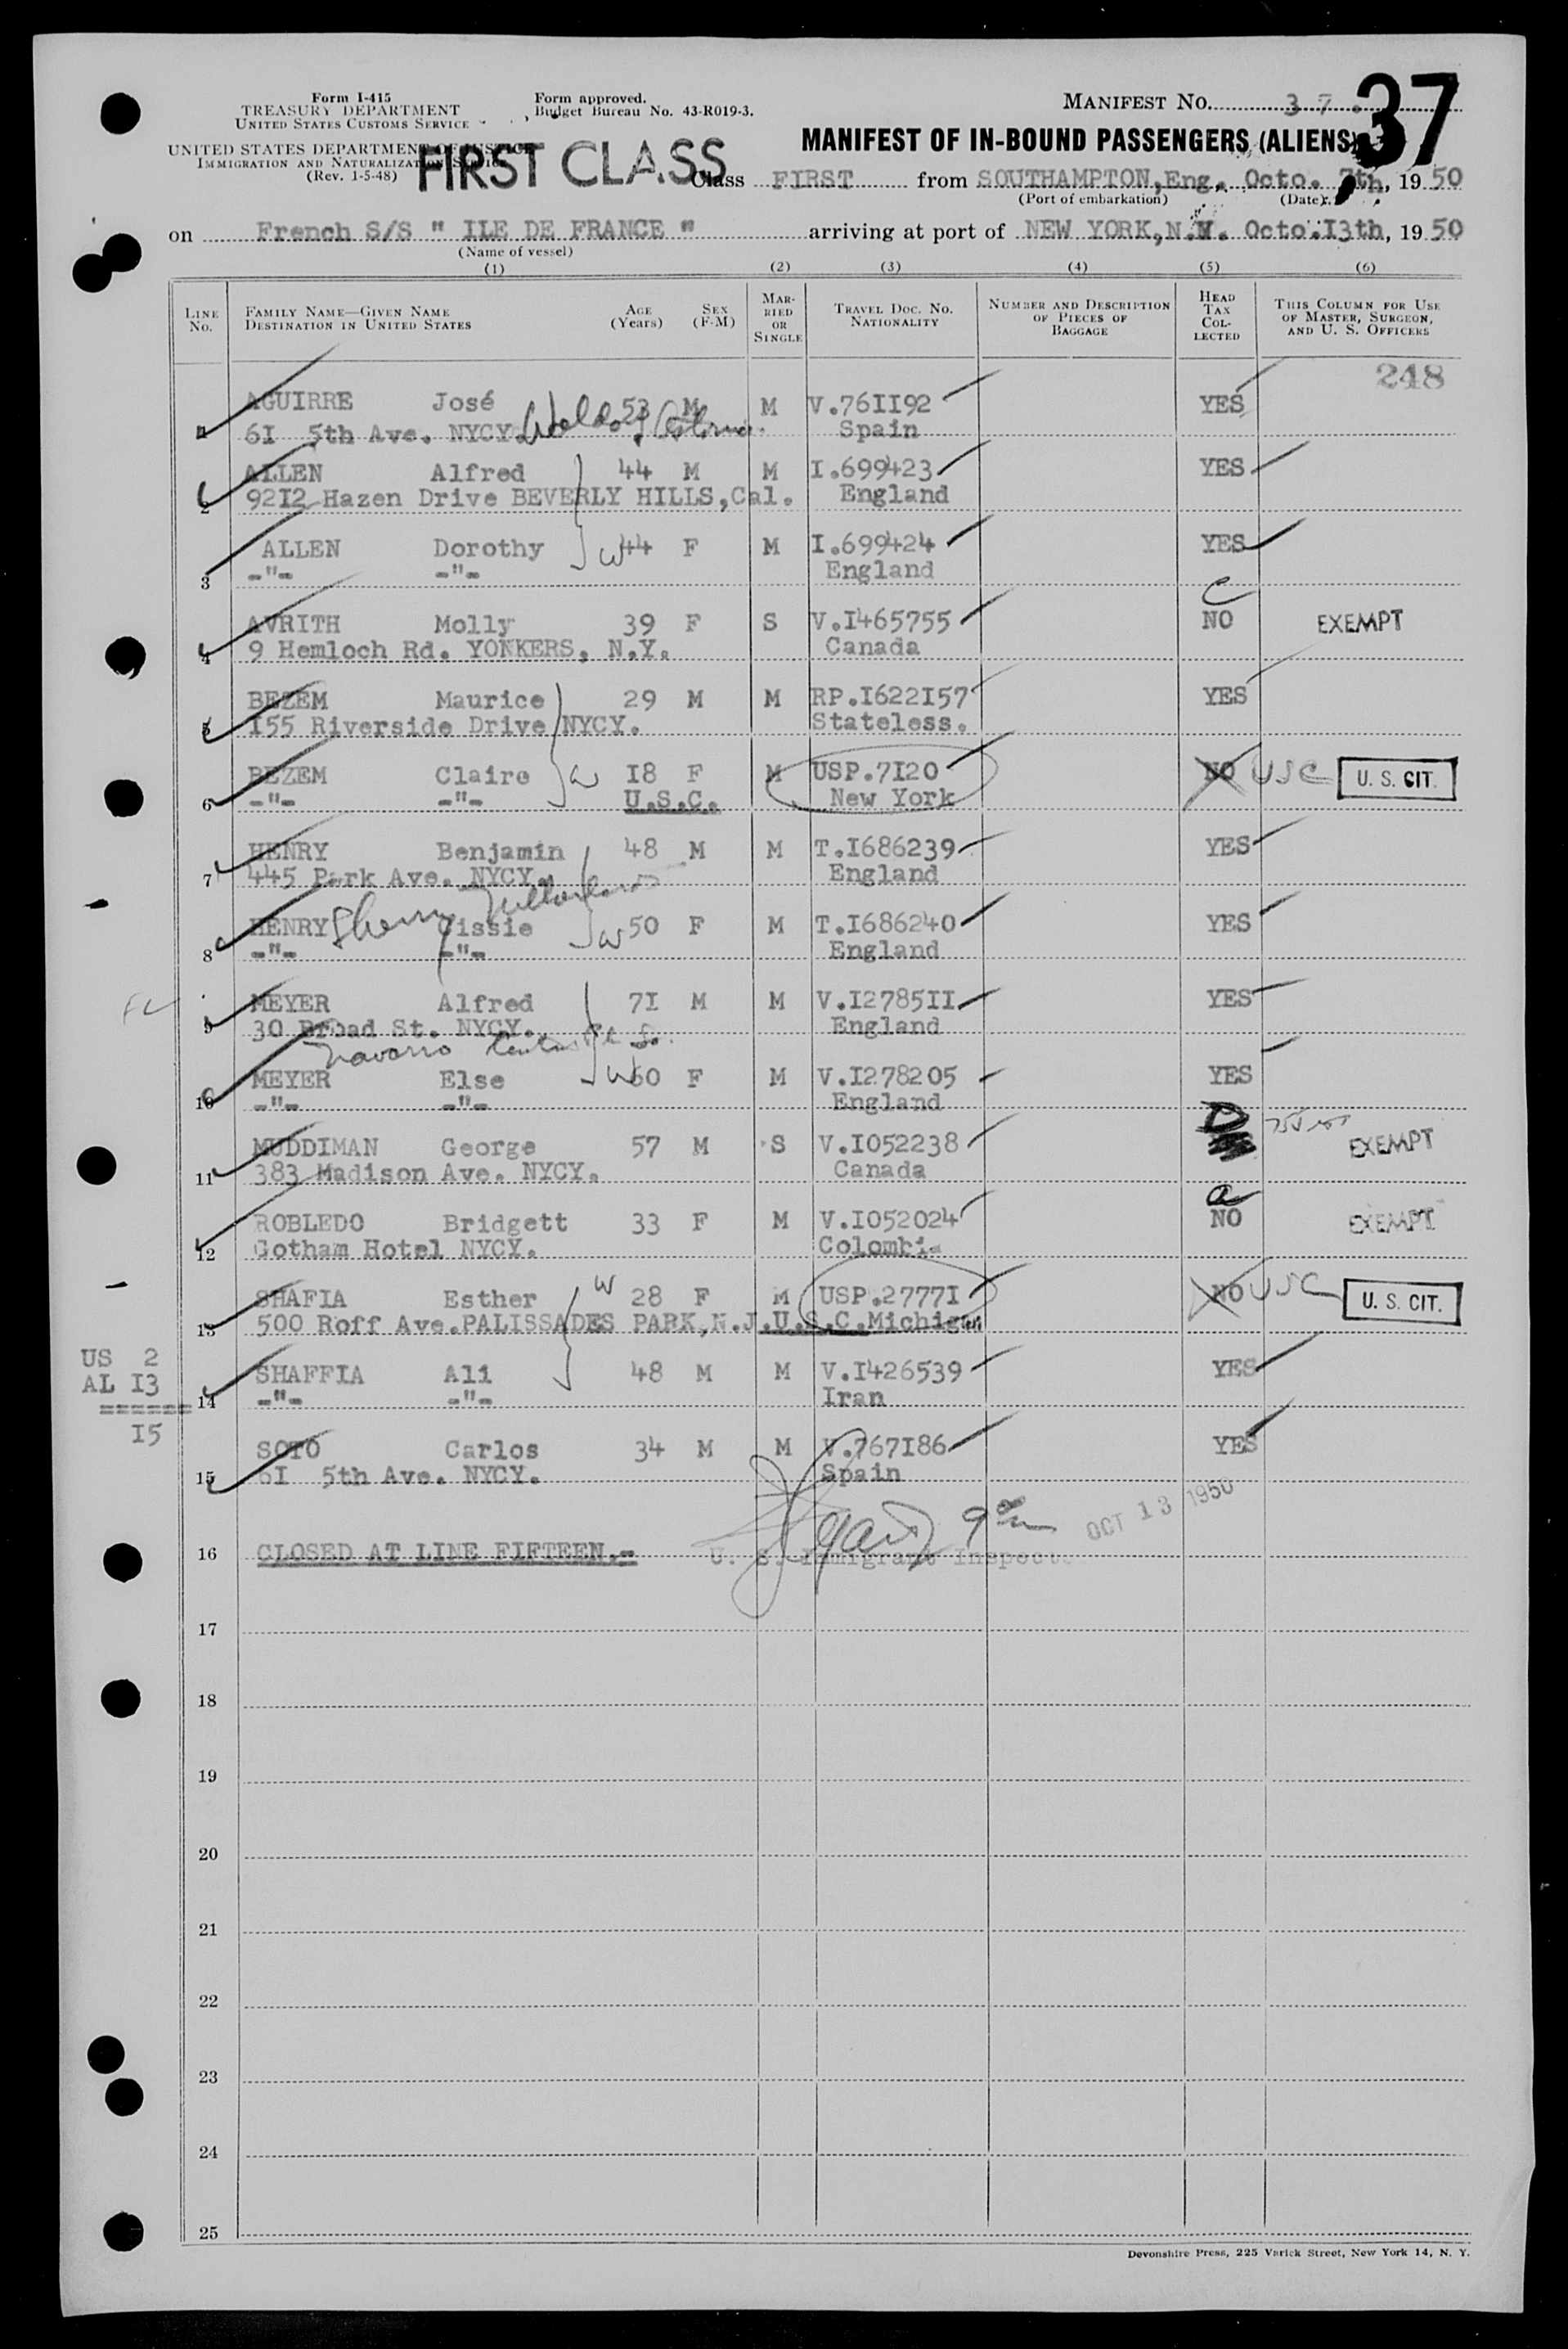 Form I-415
TREASURY DEPARTMENT
UNITED STATES CUSTOMS SERVICE
UNITED STATES DEPARTMENT OF JUSTICE
IMMIGRATION AND NATURALIZATION SERVICE
(Rev. 1-5-48)
Form approved.
Budget Bureau No. 43-R019-3.
FIRST CLASS
MANIFEST NO. 37. 37
MANIFEST OF IN-BOUND PASSENGERS (ALIENS)
Class FIRST from SOUTHAMPTON,Eng. Octo. 7th, 19 50
(Port of embarkation) (Date)
on French S/S " ILE DE FRANCE " arriving at port of NEW YORK,N.Y. Octo.I3th, 19 50
(Name of vessel)
(1) (2) (3) (4) (5) (6)
LINE No. FAMILY NAME—GIVEN NAME DESTINATION IN UNITED STATES AGE (Years) SEX (F-M) MARRIED OR SINGLE TRAVEL DOC. NO. NATIONALITY NUMBER AND DESCRIPTION OF PIECES OF BAGGAGE HEAD TAX COLLECTED THIS COLUMN FOR USE OF MASTER, SURGEON, AND U. S. OFFICERS
248
AGUIRRE José 53 M M V.76II92 YES
1 6I 5th Ave. NYCY. Waldorf Astoria. Spain
ALLEN Alfred 44 M M I.699423 YES
2 92I2 Hazen Drive BEVERLY HILLS,Cal. England
ALLEN Dorothy W 44 F M I.699424 YES
3 -"- -"- England
C
AVRITH Molly 39 F S V.I465755 NO EXEMPT
4 9 Hemloch Rd. YONKERS, N.Y. Canada
BEZEM Maurice 29 M M RP.I622I57 YES
5 I55 Riverside Drive NYCY. Stateless.
BEZEM Claire W I8 F M USP.7I20 NO USC U. S. CIT.
6 -"- -"- U.S.C. New York
HENRY Benjamin 48 M M T.I686239 YES
7 445 Park Ave. NYCY. England
Sherry
HENRY Cissie W 50 F M T.I686240 YES
8 -"- -"- England
MEYER Alfred 7I M M V.I2785II YES
9 30 Broad St. NYCY. England
Navarro
MEYER Else W 60 F M V.I278205 YES
10 -"- -"- England
D
MUDDIMAN George 57 M S V.I052238 EXEMPT
11 383 Madison Ave. NYCY. Canada
a
ROBLEDO Bridgett 33 F M V.I052024 NO EXEMPT
12 Gotham Hotel NYCY. Colombia
SHAFIA Esther W 28 F M USP.2777I NO USC U. S. CIT.
13 500 Roff Ave.PALISSADES PARK,N.J.U.S.C.Michigan
US 2
AL I3
======
I5
SHAFFIA Ali 48 M M V.I426539 YES
14 -"- -"- Iran
SOTO Carlos 34 M M V.767I86 YES
15 6I 5th Ave. NYCY. Spain
OCT 13 1950
16 CLOSED AT LINE FIFTEEN.- U. S. Immigrant Inspect
17
18
19
20
21
22
23
24
25
Devonshire Press, 225 Varick Street, New York 14, N. Y.